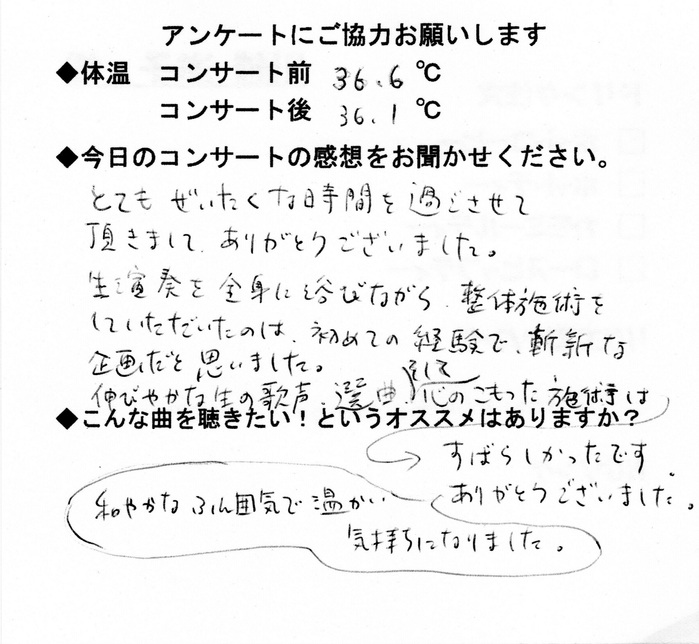 アンケートにご協力お願いします
◆体温　コンサート前　36.6 ℃
コンサート後　36.1 ℃
◆今日のコンサートの感想をお聞かせください。
とてもぜいたくな時間を過ごさせて
頂きまして、ありがとうございました。
生演奏を全身に浴びながら、整体施術を
していただいたのは、初めての経験で、斬新な
企画だと思いました。
伸びやかな生の歌声、選曲、そして心のこもった施術は
◆こんな曲を聴きたい！というオススメはありますか？
すばらしかったです
ありがとうございました。
和やかなふん囲気で温かい
気持ちになりました。